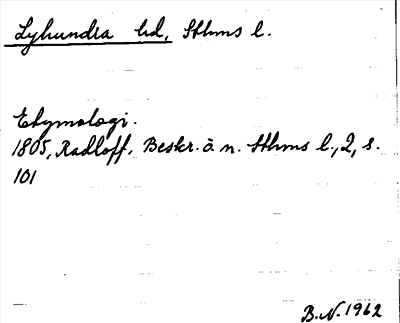 Lyhundra hd, Sthms l.
Etymologi.
1805, Radloff, Beskr. å n. Sthms l., 2, s.
101
B.N. 1962